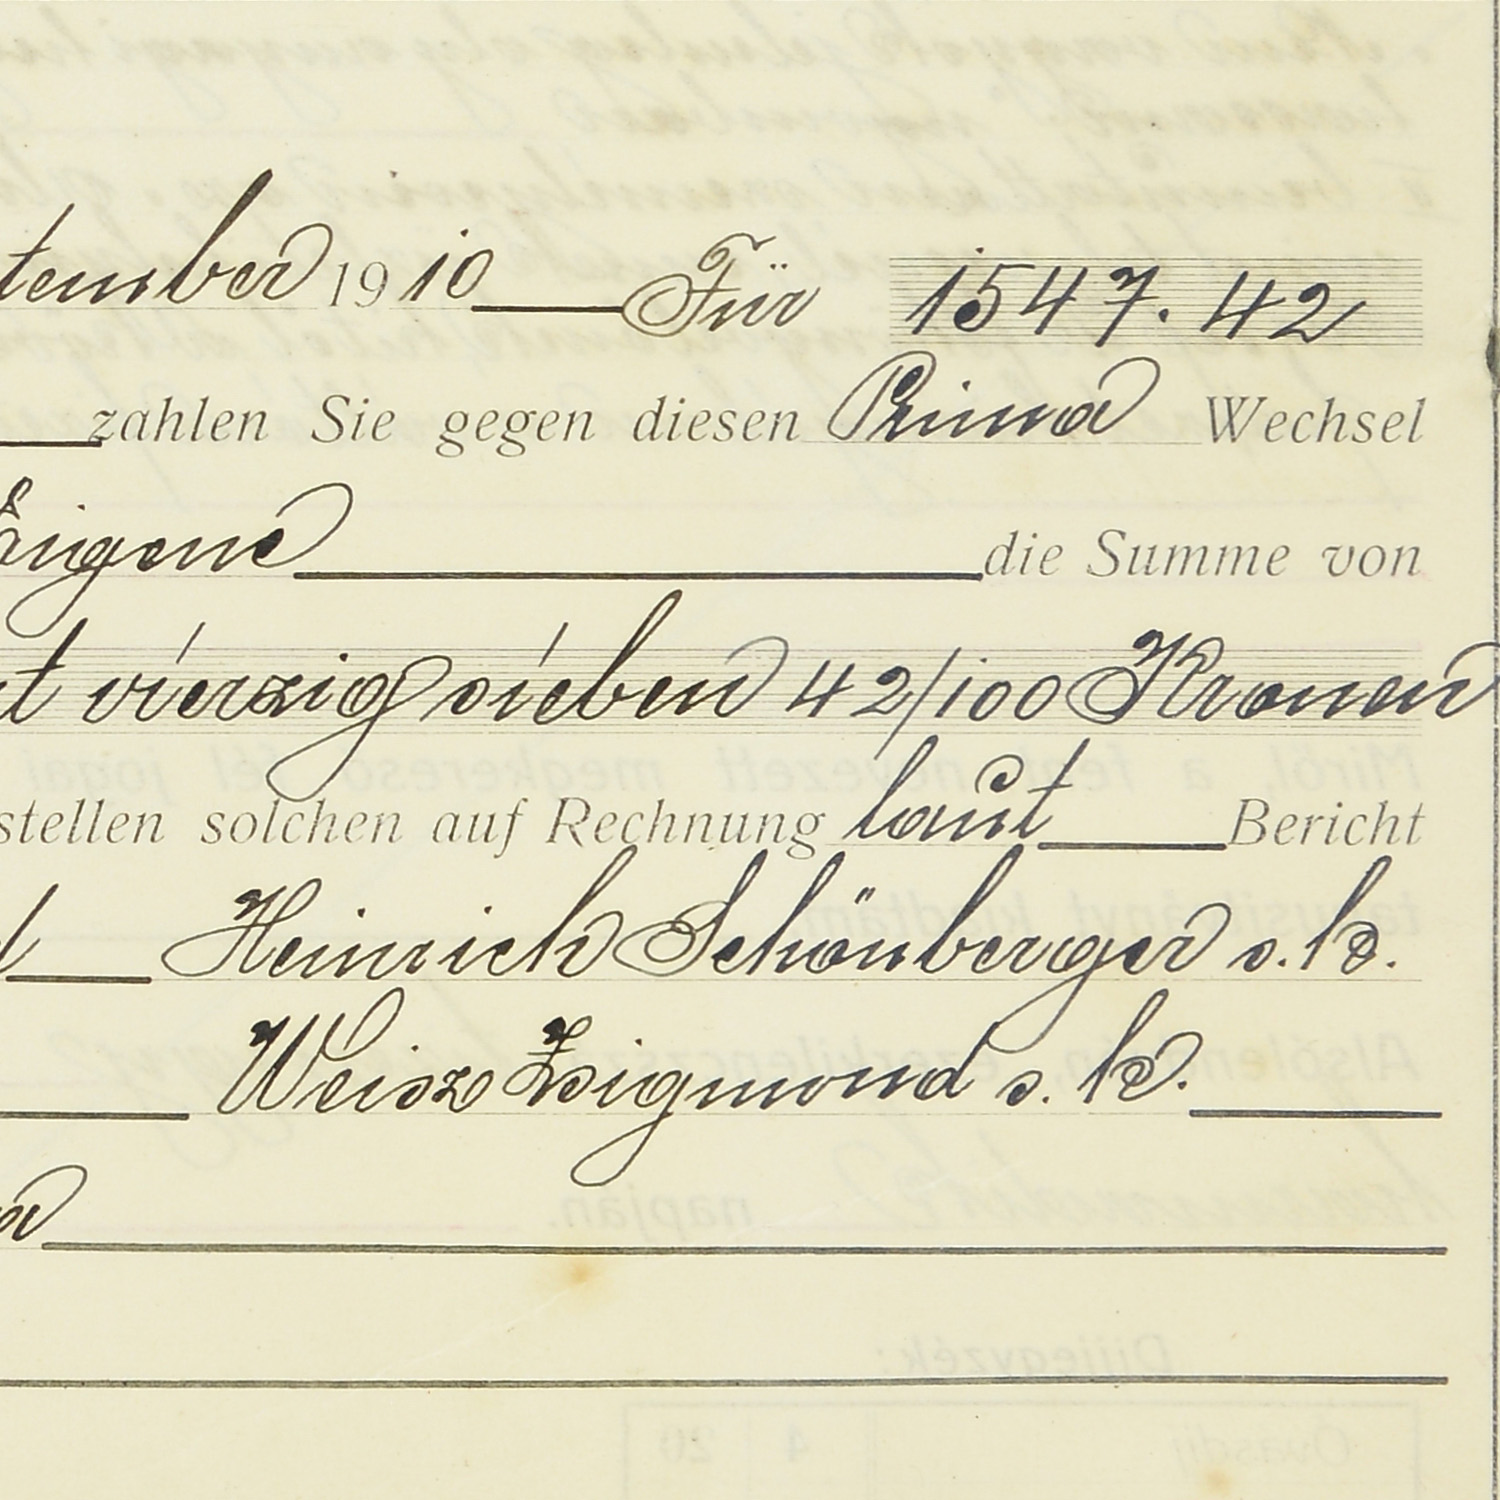 tember 1910 Für 1547.42
zahlen Sie gegen diesen Prima Wechsel
Eigene die Summe von
t vierzig sieben 42/100 Kronen
stellen solchen auf Rechnung laut Bericht
Heinrich Schönberger s. k.
Weisz Zsigmond s. k.